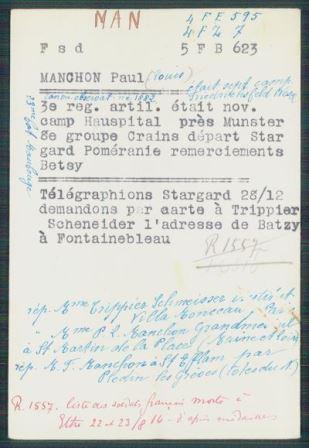 MAN
4 FE 595
4 FZ 7
F s d 5 F B 623
MANCHON Paul (Louis)
était sept camp
Friedrichsfeld
3e reg. artil. était nov.
camp Hauspital près Munster
8e groupe Crains départ Star
gard Poméranie remerciements
Betsy
Télégraphions Stargard 28/12
demandons par carte à Trippier
Scheneider l'adresse de Batzy
à Fontainebleau
R 1557.
rép. Mme Trippier Schmeisser
Villa Monceau
Mme P. L. Manchon Grandmenil
à St Martin de la Place (Maine et Loire)
rép. M. F. Manchon à St Efflam par
Plestin les Grèves (Côtes du N.)
R. 1557. liste des soldats français morts à
Ethe 22 et 23/8 14. d'après médaillons